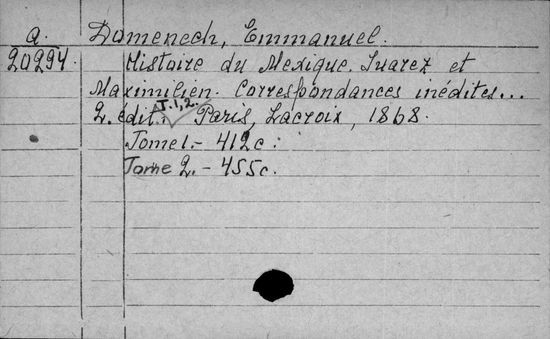 a. Domenech, Emmanuel.
20294. Histoire du Mexique. Juarez et
Maximilien. Correspondances inédites...
T.1,2.
2. édit. Paris, Lacroix, 1868.
Tome 1. - 412c.
Tome 2. - 455c.